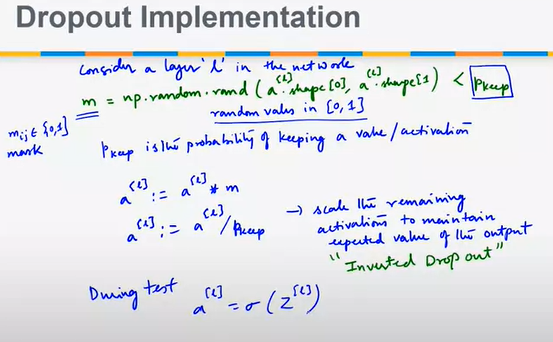 Dropout Implementation
Consider a layer 'l' in the network
m = np.random.rand (a^[l].shape[0], a^[l].shape[1]) < Pkeep
random values in [0,1]
mij ∈ {0,1}
mask
Pkeep is the probability of keeping a value/activation
a^[l] := a^[l] * m
a^[l] := a^[l] / Pkeep
→ scale the remaining
activations to maintain
expected value of the output
"Inverted Dropout"
During test
a^[l] = σ(z^[l])